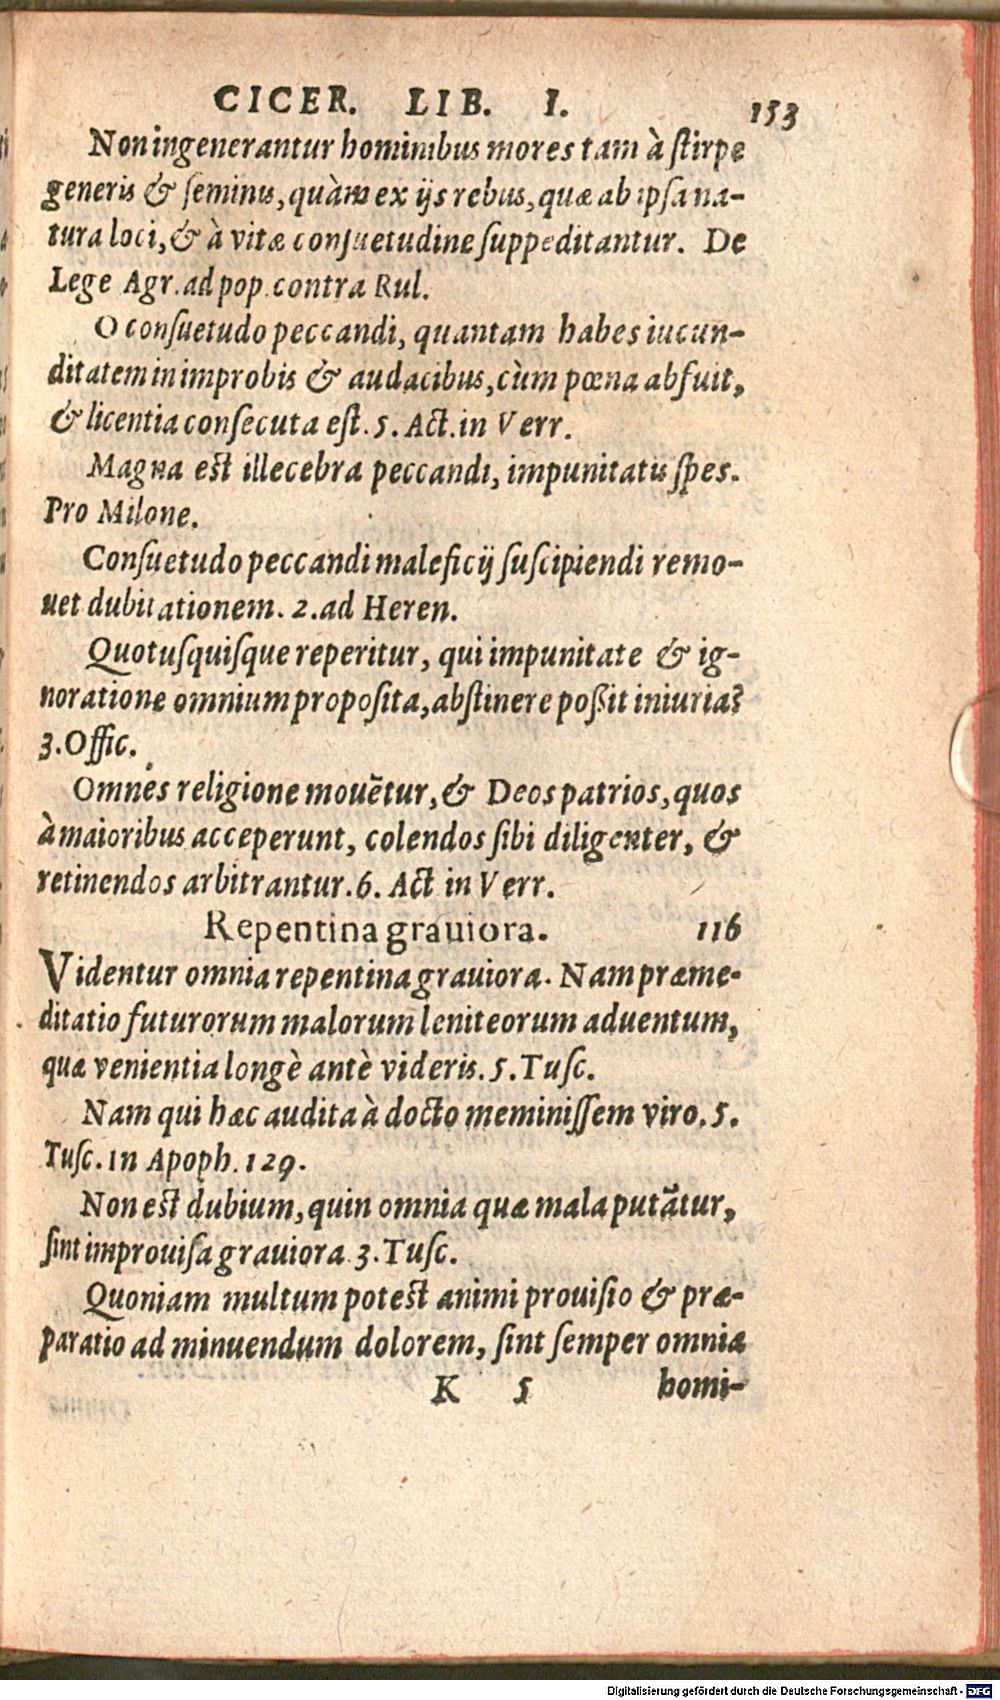 CICER. LIB. I. 153
Non ingenerantur hominibus mores tam à ſtirpe
generis & ſeminis, quàm ex ijs rebus, quæ ab ipſa na-
tura loci, & à vitæ conſuetudine ſuppeditantur. De
Lege Agr. ad pop. contra Rul.
O conſuetudo peccandi, quantam habes iucun-
ditatem in improbis & audacibus, cùm pœna abfuit,
& licentia conſecuta eſt. 5. Act. in Verr.
Magna est illecebra peccandi, impunitatis ſpes.
Pro Milone.
Conſuetudo peccandi maleficij ſuſcipiendi remo-
uet dubitationem. 2. ad Heren.
Quotuſquiſque reperitur, qui impunitate & ig-
noratione omnium propoſita, abſtinere poßit iniuria?
3. Offic.
Omnes religione mouẽtur, & Deos patrios, quos
à maioribus acceperunt, colendos ſibi diligenter, &
retinendos arbitrantur. 6. Act in Verr.
Repentina grauiora. 116
Videntur omnia repentina grauiora. Nam præme-
ditatio futurorum malorum lenit eorum aduentum,
quæ venientia longè antè videris. 5. Tuſc.
Nam qui hæc audita à docto meminiſſem viro. 5.
Tuſc. in Apoph. 129.
Non est dubium, quin omnia quæ mala putãtur,
ſint improuiſa grauiora 3. Tuſc.
Quoniam multum potest animi prouiſio & præ-
paratio ad minuendum dolorem, ſint ſemper omnia
K 5 homi-
Digitalisierung gefördert durch die Deutsche Forschungsgemeinschaft - DFG